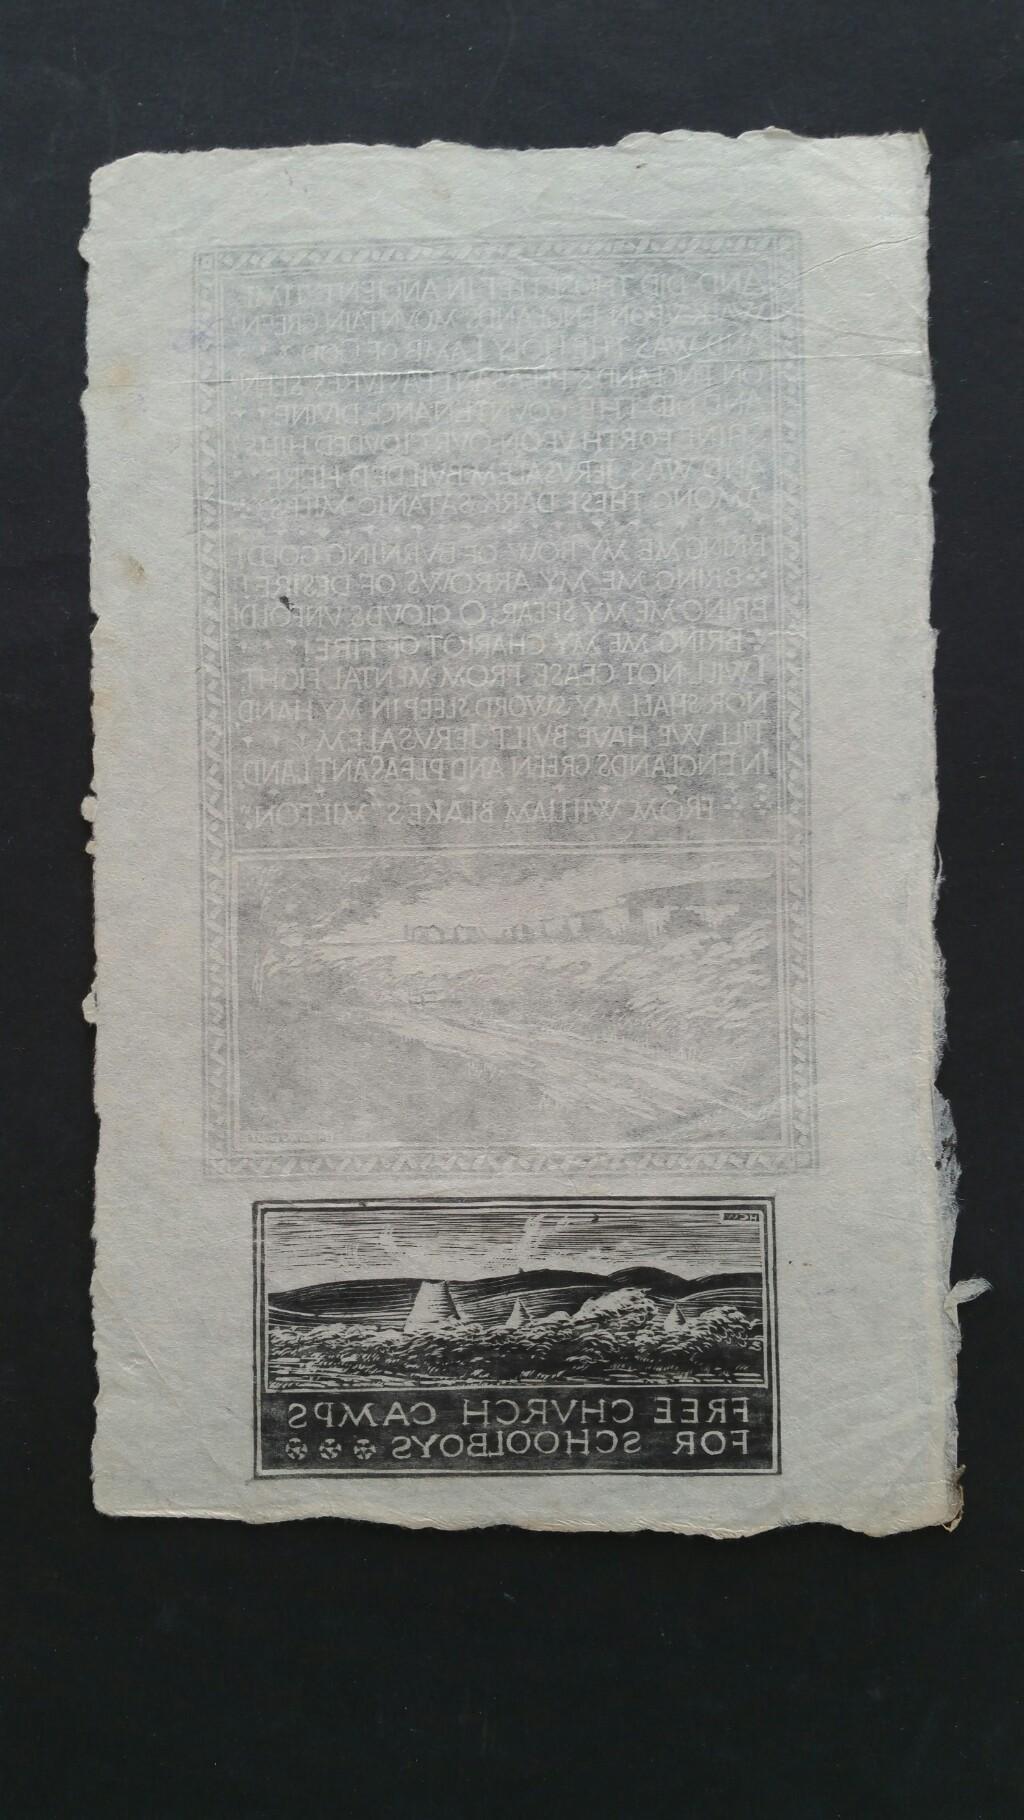 AND DID THOSE FEET IN ANCIENT TIME
WALK VPON ENGLANDS MOVNTAIN GREEN?
AND WAS THE HOLY LAMB OF GOD
ON ENGLANDS PLEASANT PASTVRES SEEN?
AND DID THE COVNTENANCE DIVINE
SHINE FORTH VPON OVR CLOVDED HILLS?
AND WAS JERVSALEM BVILDED HERE
AMONG THESE DARK SATANIC MILLS?
BRING ME MY BOW OF BVRNING GOLD!
BRING ME MY ARROWS OF DESIRE!
BRING ME MY SPEAR: O CLOVDS VNFOLD!
BRING ME MY CHARIOT OF FIRE!
I WILL NOT CEASE FROM MENTAL FIGHT,
NOR SHALL MY SWORD SLEEP IN MY HAND,
TILL WE HAVE BVILT JERVSALEM
IN ENGLANDS GREEN AND PLEASANT LAND.
FROM WILLIAM BLAKE'S "MILTON".
HCW
FREE CHVRCH CAMPS
FOR SCHOOLBOYS